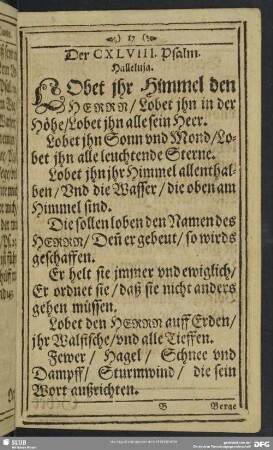 17
Der CXLVIII. Psalm.
Halleluja.
LObet jhr Himmel den
HERRN/ Lobet jhn in der
Höhe/Lobet jhn alle sein Heer.
Lobet jhn Sonn vnd Mond/Lo-
bet jhn alle leuchtende Sterne.
Lobet jhn jhr Himmel allenthal-
ben/ Vnd die Wasser/ die oben am
Himmel sind.
Die sollen loben den Namen des
HERRN/ Deñ er gebeut/ so wirds
geschaffen.
Er helt sie jm̃er vnd ewiglich/
Er ordnet sie/ daß sie nicht anders
gehen müssen.
Lobet den HERRN auff Erden/
jhr Walfische/vnd alle Tieffen.
Fewer/ Hagel/ Schnee vnd
Dampff/ Sturmwind/ die sein
Wort außrichten.
B Berge
SLUB